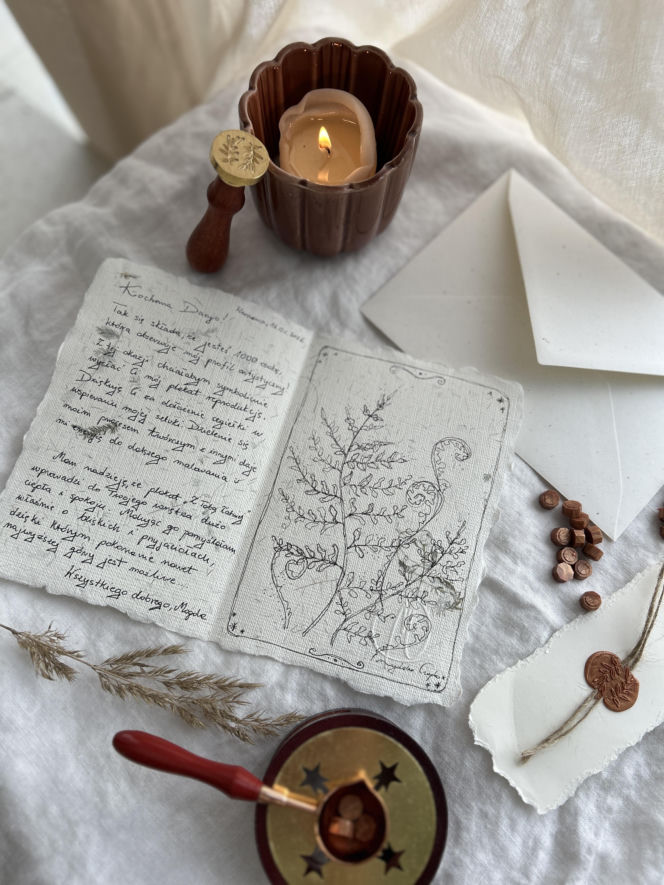 Kochana Dario!
Tak się składa, że jesteś 1000 osobą,
która obserwuje mój profil artystyczny!
Z tej okazji chciałabym symbolicznie
wysłać Ci mój plakat reprodukcję.
Dziękuję Ci za dołożenie cegiełki w
wspieraniu mojej sztuki. Dzielenie się
moim procesem twórczym z innymi daje
mi do dalszego malowania
Mam nadzieję, że plakat
wprowadzi do Twojego wnętrza dużo
ciepła i spokoju. Malując go pomyślałam
właśnie o bliskich i przyjaciołach,
dzięki którym pokonanie nawet
gdy jest możliwe.
Wszystkiego dobrego, Magda